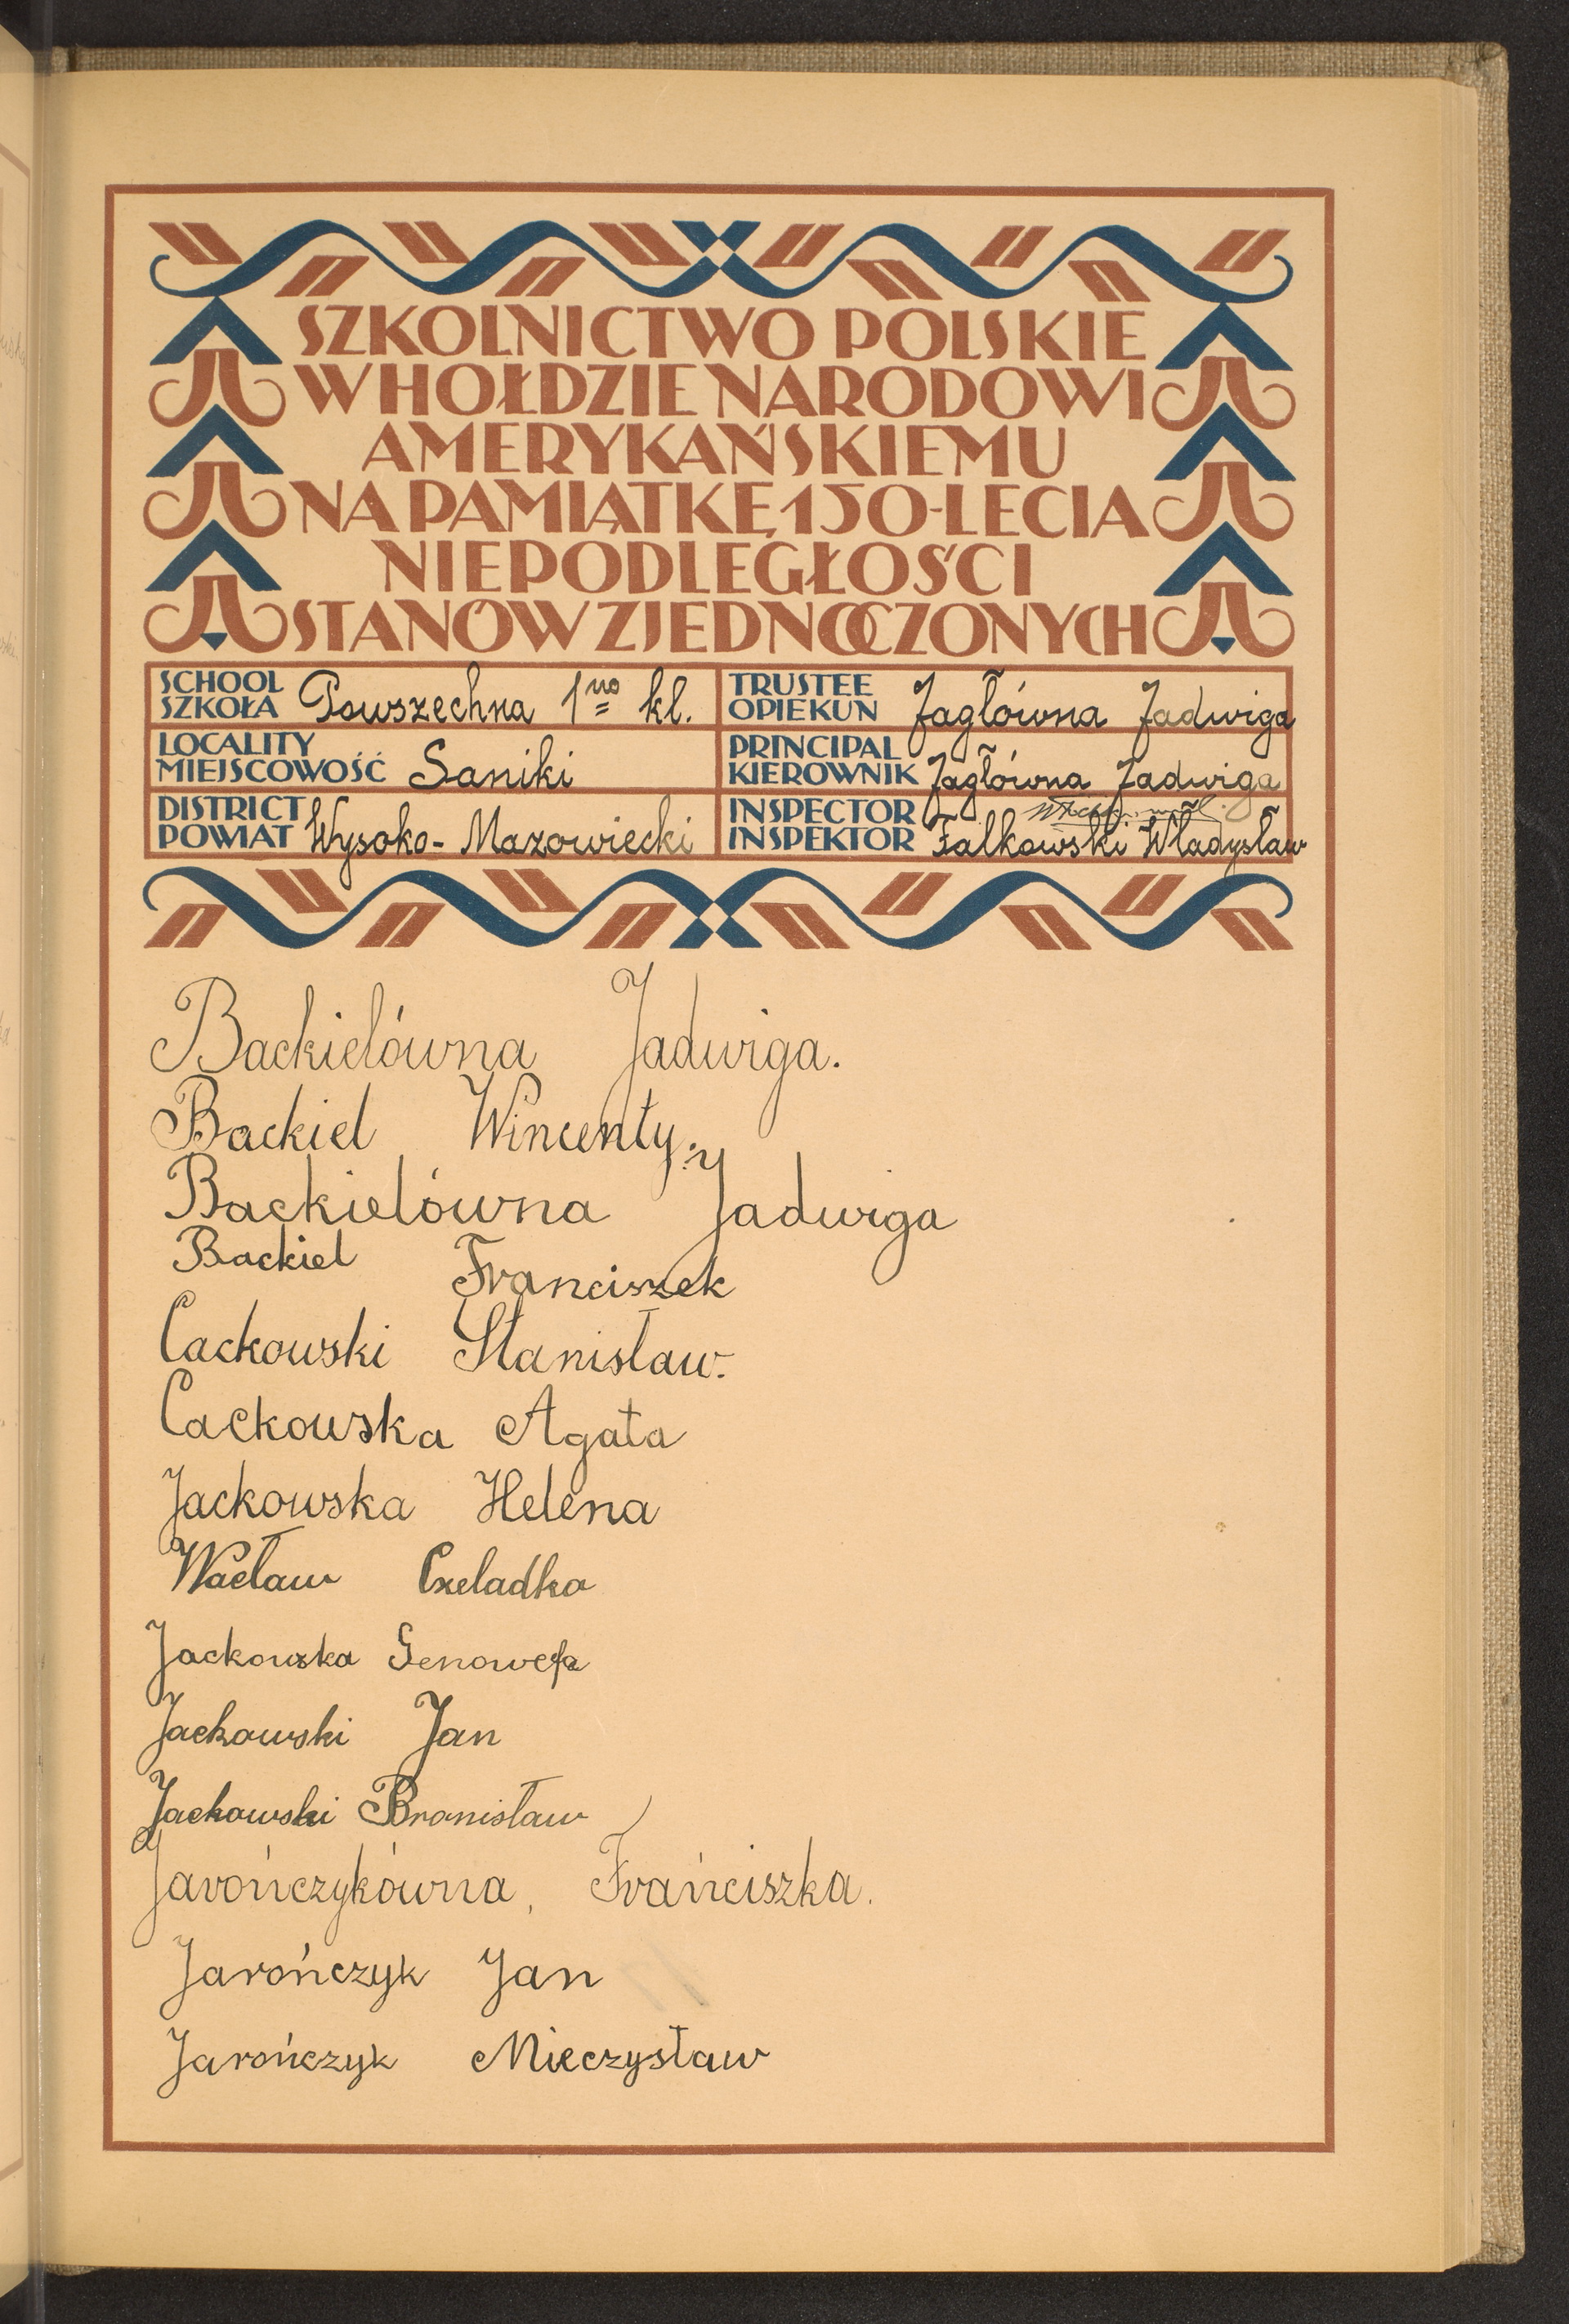 SZKOLNICTWO POLSKIE
W HOŁDZIE NARODOWI
AMERYKAŃSKIEMU
NA PAMIĄTKĘ 150-LECIA
NIEPODLEGŁOŚCI
STANÓW ZJEDNOCZONYCH
SCHOOL
SZKOŁA Powszechna 1no kl.
TRUSTEE
OPIEKUN Jagłówna Jadwiga
LOCALITY
MIEJSCOWOŚĆ Saniki
PRINCIPAL
KIEROWNIK Jagłówna Jadwiga
DISTRICT
POWIAT Wysoko-Mazowiecki
INSPECTOR
INSPEKTOR Falkowski Władysław
Backielówna Jadwiga.
Backiel Wincenty.
Backielówna Jadwiga
Backiel Franciszek
Cackowski Stanisław.
Cackowska Agata
Jackowska Helena
Wacław Czeladko
Jackowska Genowefa
Jackowski Jan
Jackowski Bronisław
Jarończykówna, Frańciszka.
Jarończyk Jan
Jarończyk Mieczysław